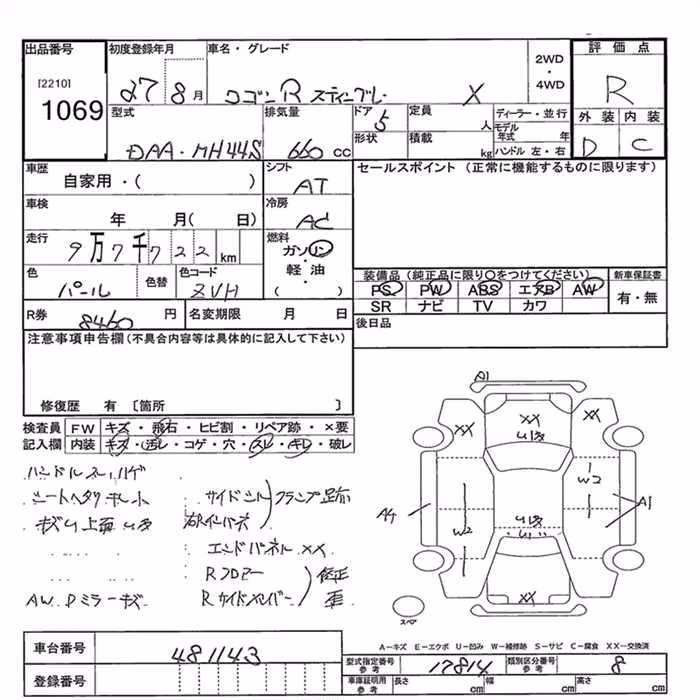 出品番号 初度登録年月 車名・グレード 評価点
[2210] 1069 27 8月 ワゴンR スティングレー X 2WD・4WD R
型式 排気量 ドア 5 定員 人 ディーラー・並行 外装 内装
DAA・MH44S 660 cc 形状 積載 kg モデル年式 年 ハンドル 左・右 D C
車歴 シフト セールスポイント (正常に機能するものに限ります)
自家用・( ) AT
車検 冷房
年 月( 日) AC
走行 燃料
9万7千722 km ガソリン・軽油・( )
色 色替 色コード 装備品 (純正品に限り○をつけてください) 新車保証書
パール ZVH PS PW ABS エアB AW 有・無
SR ナビ TV カワ
R券 8460 円 名変期限 月 日 後日品
注意事項申告欄 (不具合内容等は具体的に記入して下さい)
修復歴 有 [箇所 ]
検査員 FW キズ・飛石・ヒビ割・リペア跡・×要
記入欄 内装 キズ・汚レ・コゲ・穴・スレ・キレ・破レ
ハンドルスレ ハゲ
シートヘタリ サイドシル クランプ
エンドパネル XX
Rフロアー 修正
AW Dミラーキズ Rサイドメンバー
A1
XX XX XX
U1
A4 W2 W2 A1
U1
XX
スペア
A－キズ E－エクボ U－凹み W－補修跡 S－サビ C－腐食 XX－交換済
車台番号 481143 型式指定番号 参考 17814 類別区分番号 参考 8
登録番号 車庫証明用 参考 長さ cm 幅 cm 高さ cm